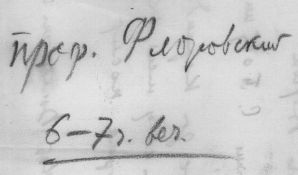 проф. Флоровский
6–7ч. веч.